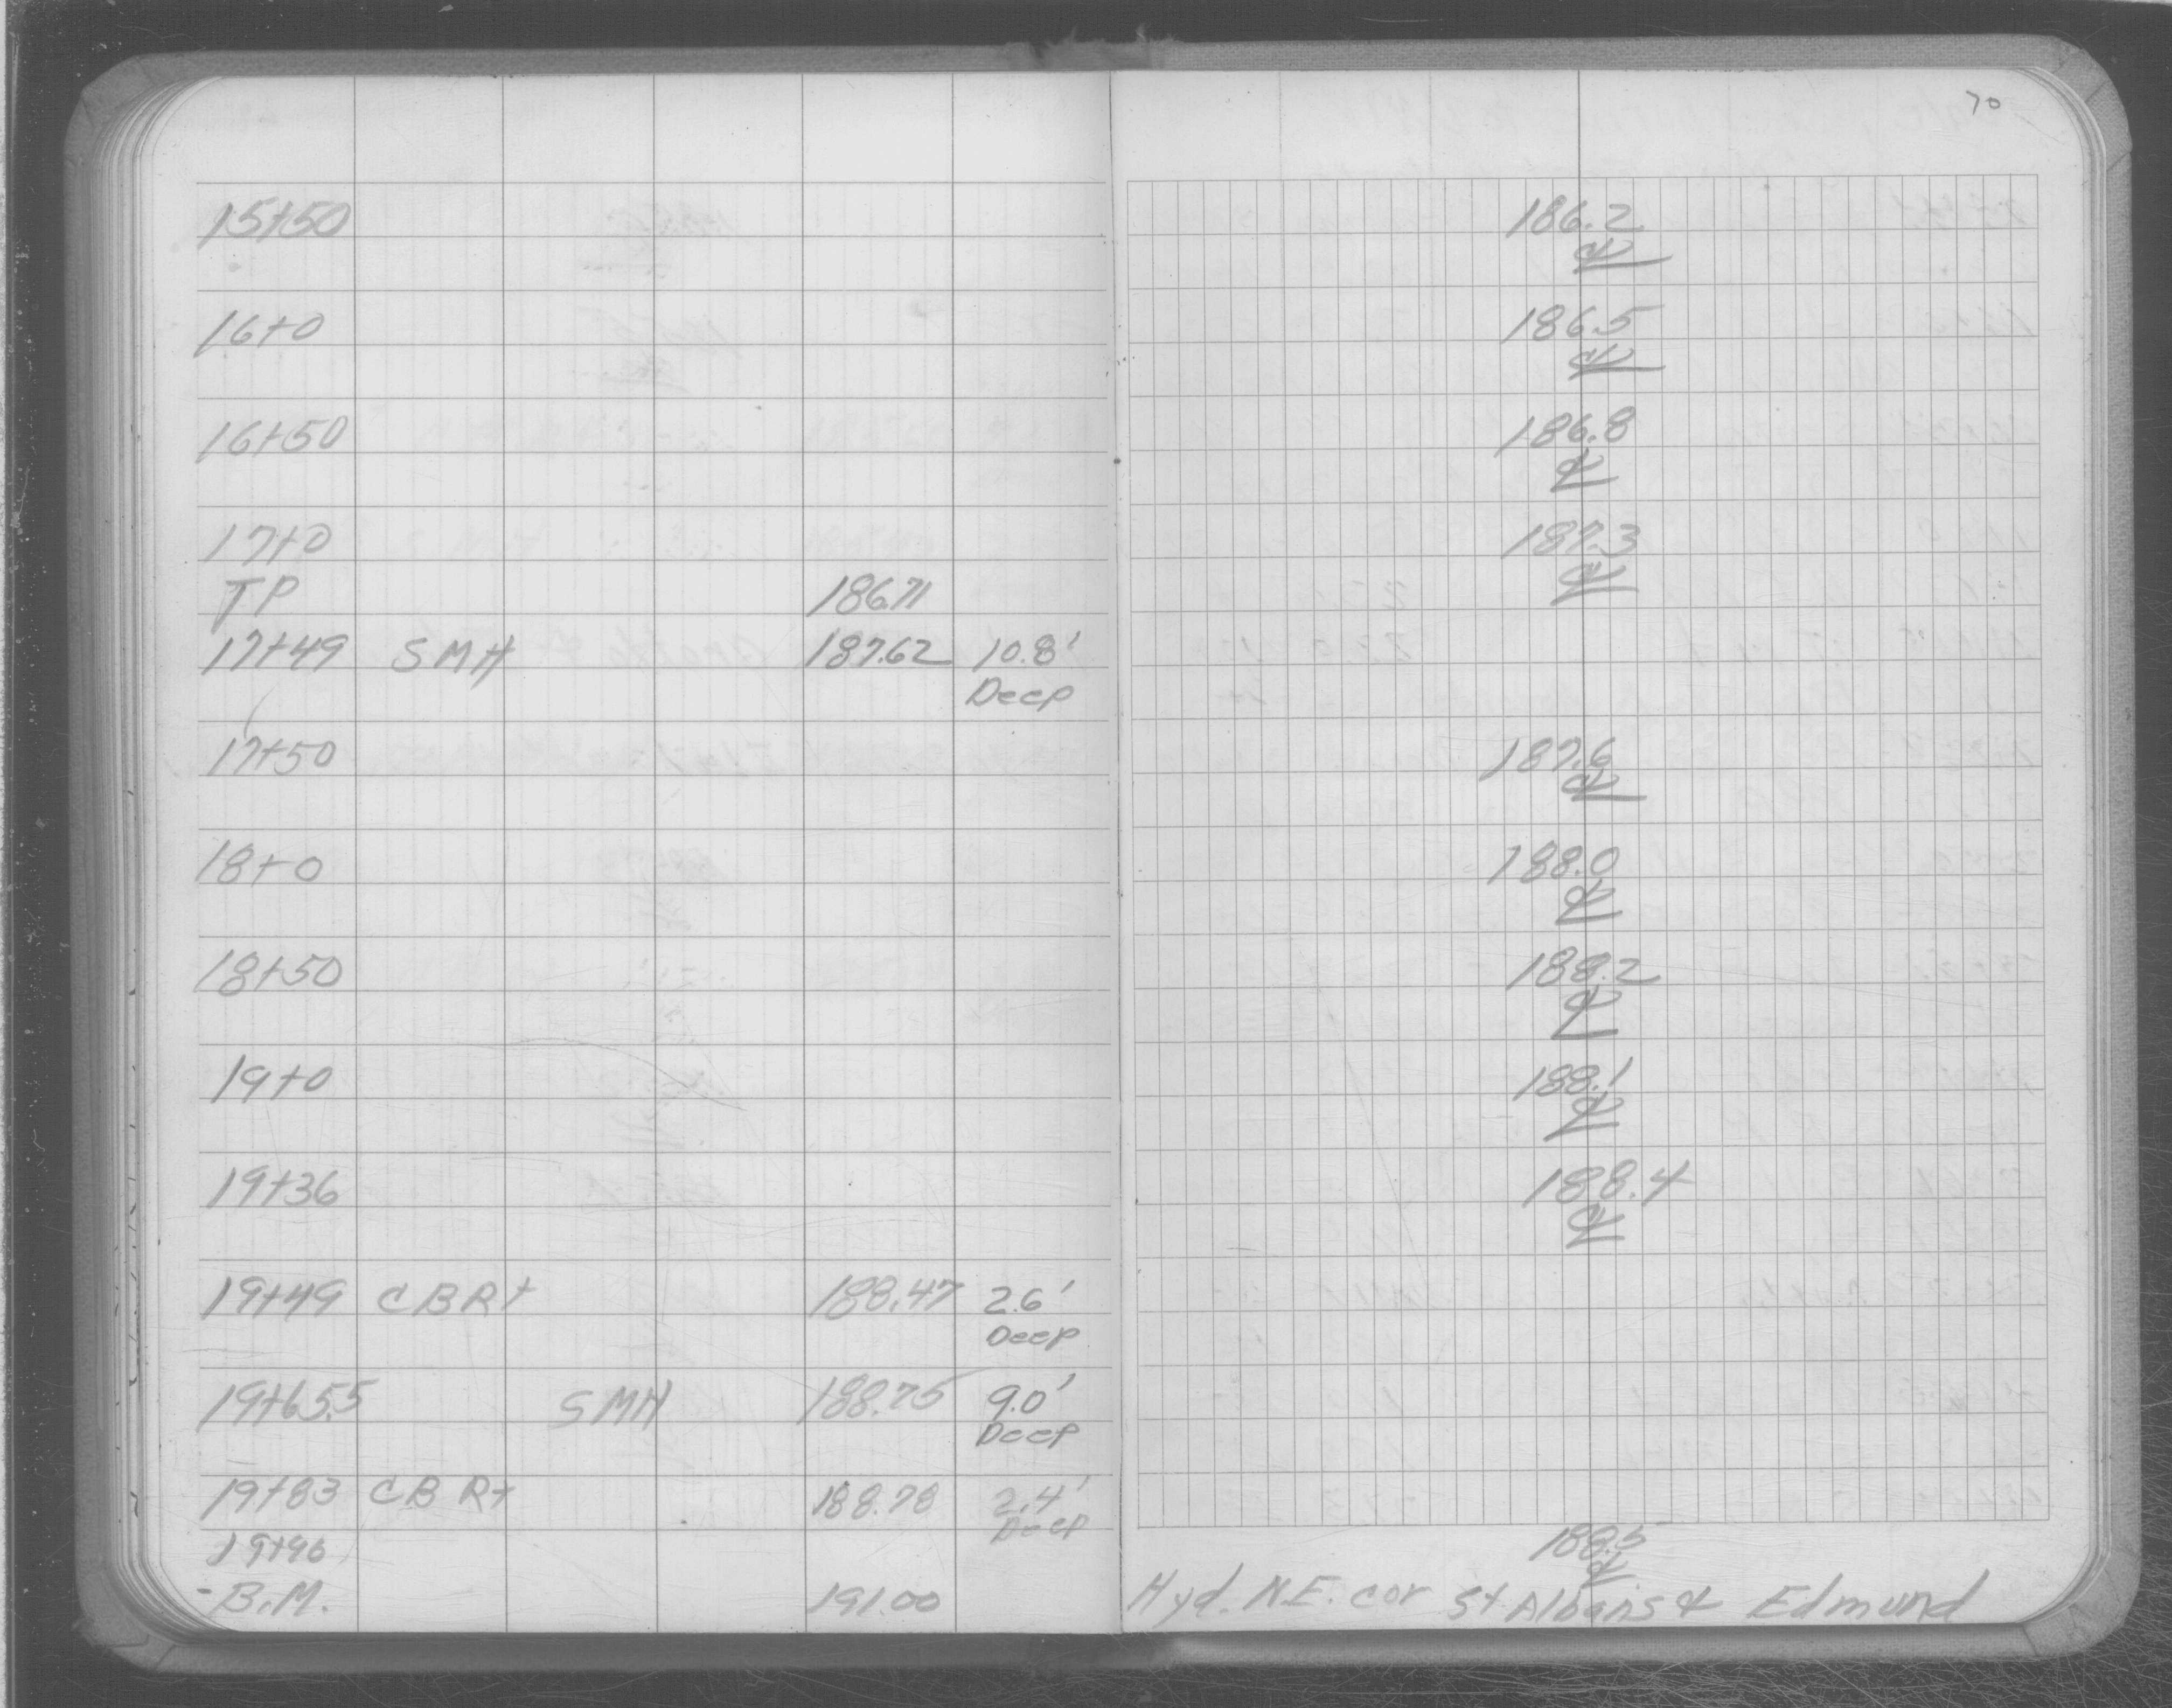 70
15+50 186.2
℄
16+0 186.5
℄
16+50 186.8
℄
17+0 187.3
℄
TP 186.71
17+49 SMH 187.62 10.8'
Deep
17+50 187.6
℄
18+0 188.0
℄
18+50 188.2
℄
19+0 188.1
℄
19+36 188.4
℄
19+49 CBRt 188.47 2.6'
Deep
19+65.5 SMH 188.75 9.0'
Deep
19+83 CBRt 188.78 2.4'
Deep
19+96 188.5
℄
B.M. 191.00 Hyd. N.E. cor St Albans & Edmund